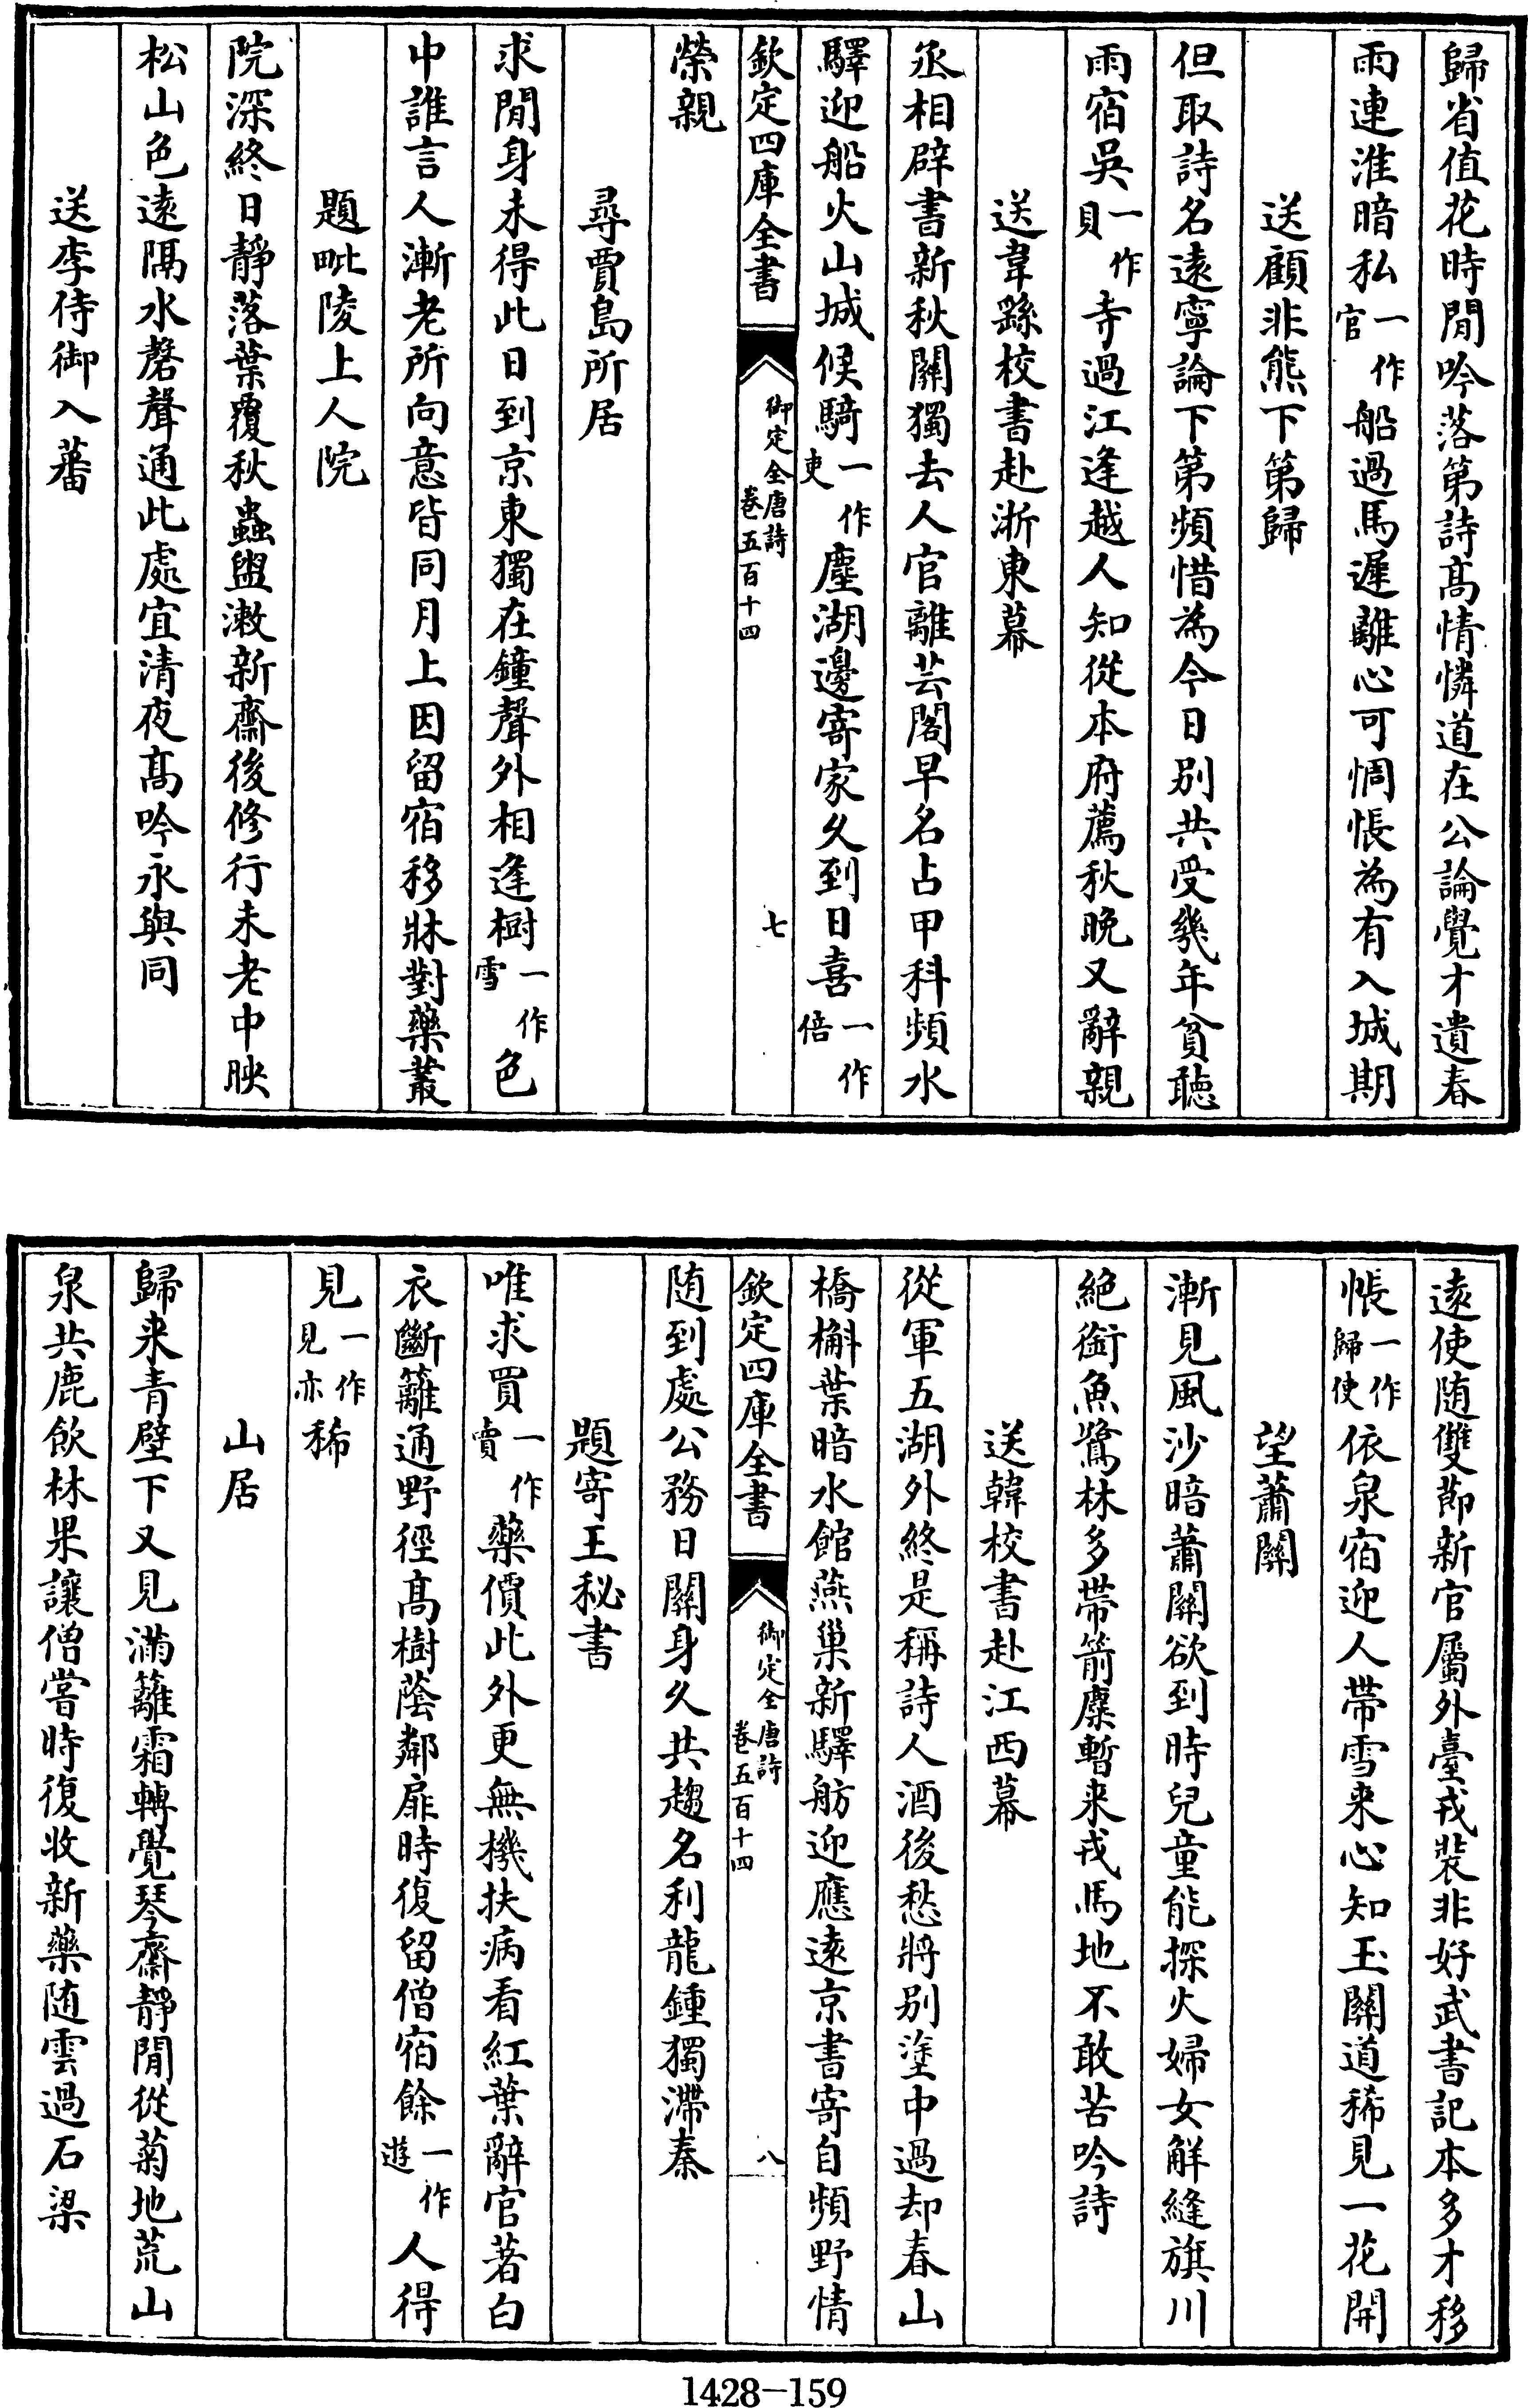 歸省值花時閒吟落第詩髙情憐道在公論覺才遺春
雨連淮暗私一作官船過馬遲離心可惆悵為有入城期
送顧非熊下第歸
但取詩名遠寧論下第頻惜為今日别共受幾年貧聽
雨宿吳一作貝寺過江逢越人知從本府薦秋晚又辭親
送韋繇校書赴浙東幕
丞相辟書新秋關獨去人官離芸閣早名占甲科頻水
驛迎船火山城候騎一作吏塵湖邊寄家久到日喜一作倍
欽定四庫全書
御定全唐詩
卷五百十四
七
榮親
尋賈島所居
求閒身未得此日到京東獨在鐘聲外相逢樹一作雪色
中誰言人漸老所向意皆同月上因留宿移牀對藥叢
題毗陵上人院
院深終日靜落葉覆秋蟲盥漱新齋後修行未老中映
松山色遠隔水磬聲通此處宜清夜髙吟永與同
送李侍御入蕃
遠使随雙節新官屬外臺戎裝非好武書記本多才移
帳一作歸使依泉宿迎人帶雪来心知玉關道稀見一花開
望蕭關
漸見風沙暗蕭關欲到時兒童能探火婦女解縫旗川
絶銜魚鷺林多帶箭麋暫来戎馬地不敢苦吟詩
送韓校書赴江西幕
從軍五湖外終是稱詩人酒後愁將别塗中過却春山
橋槲葉暗水館燕巢新驛舫迎應遠京書寄自頻野情
欽定四庫全書
御定全唐詩
卷五百十四
八
随到處公務日關身久共趨名利龍鍾獨滯秦
題寄王秘書
唯求買一作賣藥價此外更無機扶病看紅葉辭官著白
衣斷籬通野徑髙樹蔭鄰扉時復留僧宿餘一作遊人得
見一作見亦稀
山居
歸来青壁下又見滿籬霜轉覺琴齋靜閒從菊地荒山
泉共鹿飲林果讓僧嘗時復收新藥随雲過石梁
1428—159